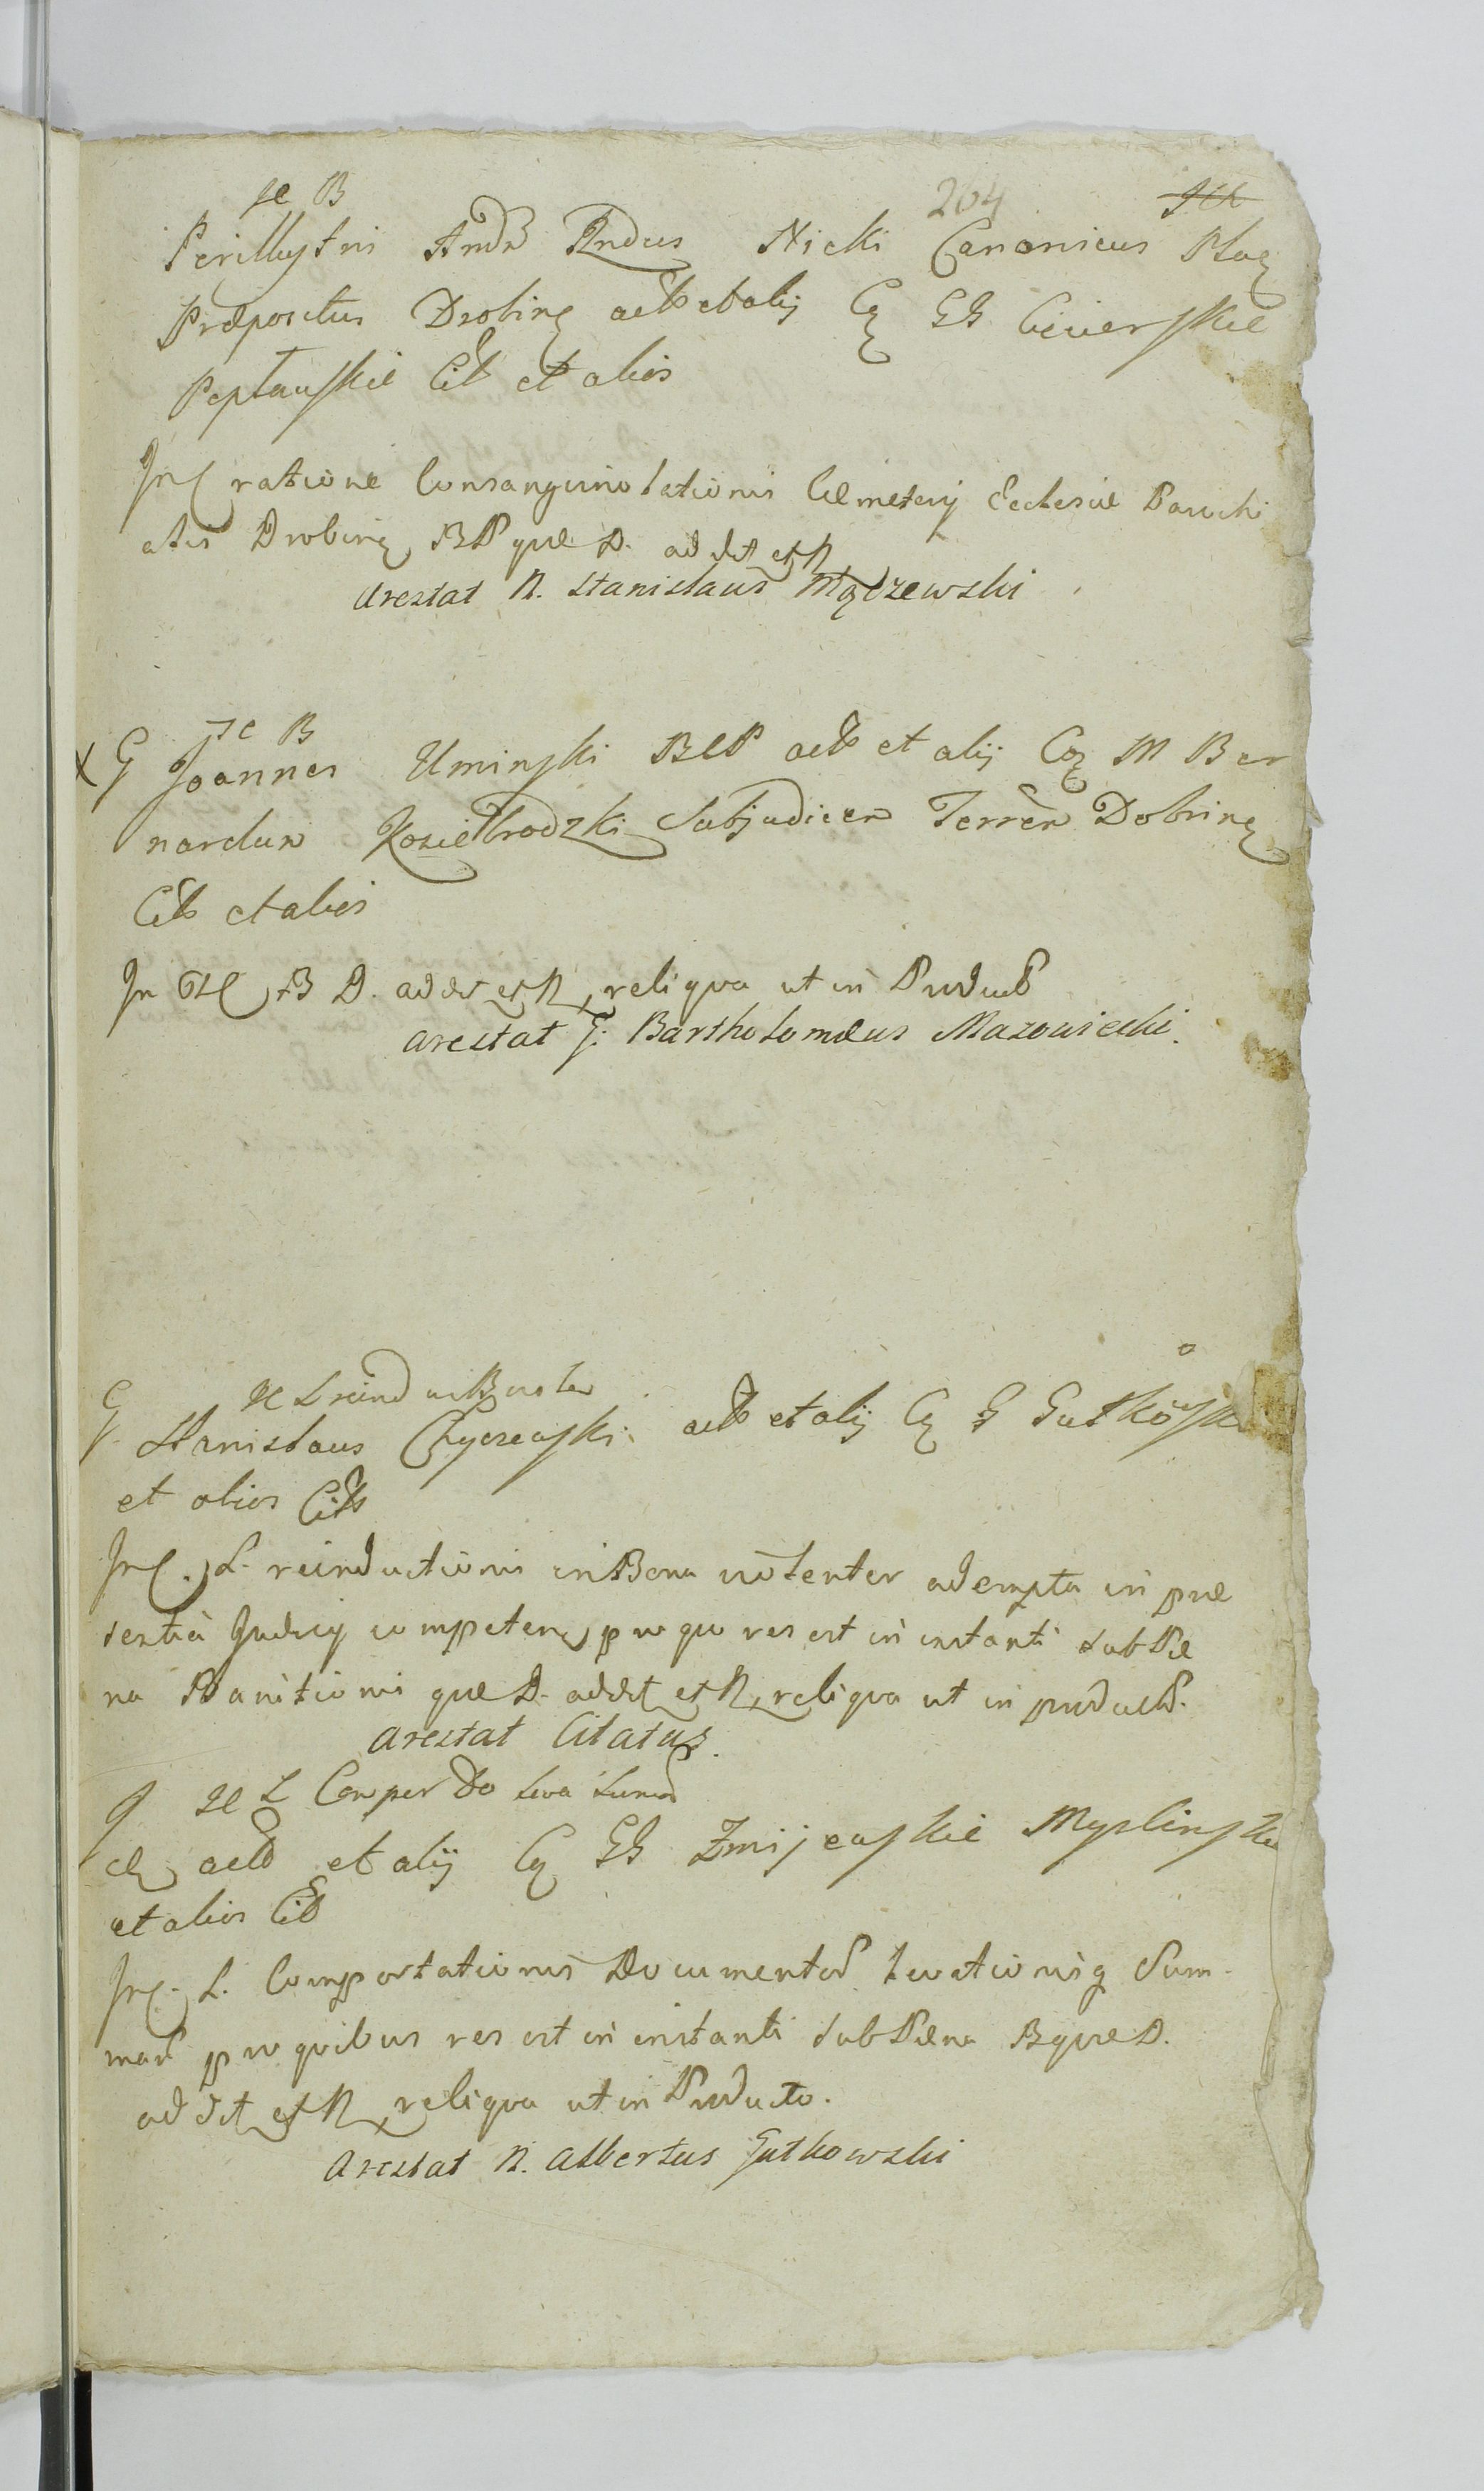 204
Je B
Perillustris Andr Rndus Nicki Canonicus Ploc
Præpositus Drobinę actb et alij Cq GG Ciecierskie
Peptauskie Cit et alios
In ratione Consanguinolationis Cæmeterij Ecclesiæ Parochi
alis Drobinę BP quæ D. addt et N
arestat N. Stanislaus Mączewski
Je B
X G Joannes Uminski BCP actb et alij Cq M Ber
nardum Kosiebrodzki Subjudicem Terren Dobrinę
Citb et alios
In B D. addt et N, reliqua ut in Produc
arestat G: Bartholomæus Mazowiecki.
Je L reind
G Stanislaus actb et alij Cq G Gutkowski
et alios Citb
In L. reinductionis in Bona violenter adempta in præ
sentia Judicij competen pro quo res est in instanti sub Pæ
na Banitionis quæ D. addt et N, reliqua ut in product.
arestat Citatus.
G Je L Compor Do Leva Sum
actb et alij Cq GG Zmijewskie Myslinskie
et alios Cit
In L. Comportationis Documentor Levationisq Sum-
mar pro quibus res est in instanti sub Pæna B quæ D.
addt et N reliqua ut in Producto.
arestat N. Albertus Gutkowski